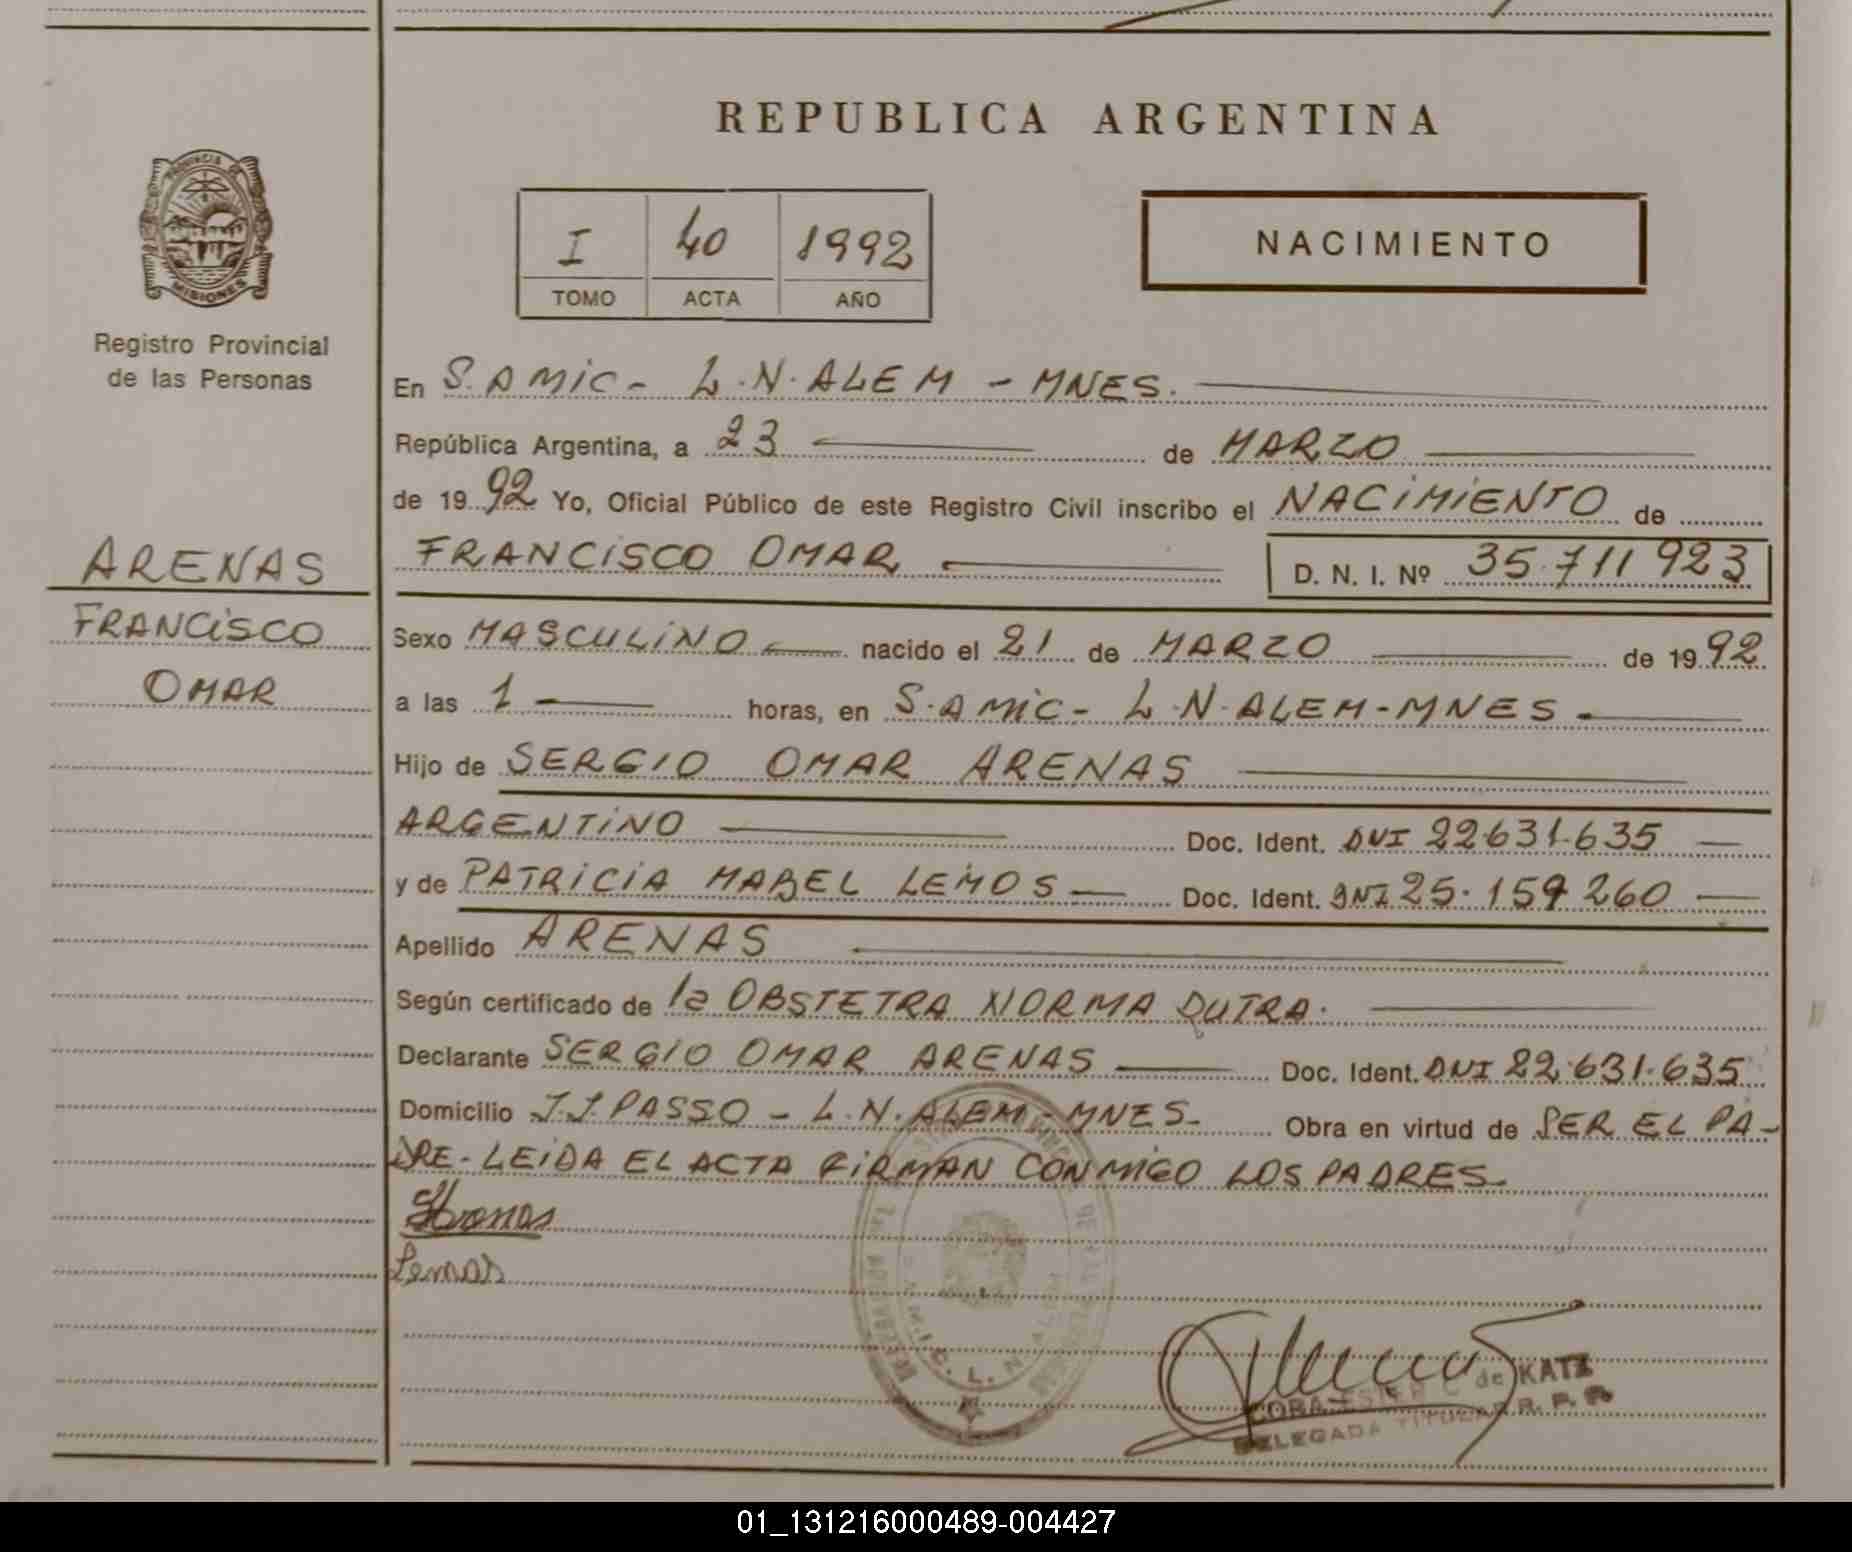 REPUBLICA ARGENTINA
PROVINCIA DE
MISIONES
Registro Provincial
de las Personas
I 40 1992
TOMO ACTA AÑO
NACIMIENTO
En S. AMIC- L.N. ALEM - MNES.
República Argentina, a 23 de MARZO
de 1992 Yo, Oficial Público de este Registro Civil inscribo el NACIMIENTO de
ARENAS
FRANCISCO
OMAR
FRANCISCO OMAR D. N. I. Nº 35.711 923
Sexo MASCULINO nacido el 21 de MARZO de 1992
a las 1 horas, en S. AMIC- L.N. ALEM-MNES
Hijo de SERGIO OMAR ARENAS
ARGENTINO Doc. Ident. DNI 22.631.635
y de PATRICIA MABEL LEMOS Doc. Ident. DNI 25.159 260
Apellido ARENAS
Según certificado de la OBSTETRA NORMA DUTRA.
Declarante SERGIO OMAR ARENAS Doc. Ident. DNI 22.631.635
Domicilio J.J. PASSO - L.N. ALEM - MNES- Obra en virtud de SER EL PA-
DRE- LEIDA EL ACTA FIRMAN CONMIGO LOS PADRES-
Arenas
Lemos
de KATZ
DELEGADA TITULAR R. P. P.
01_131216000489-004427